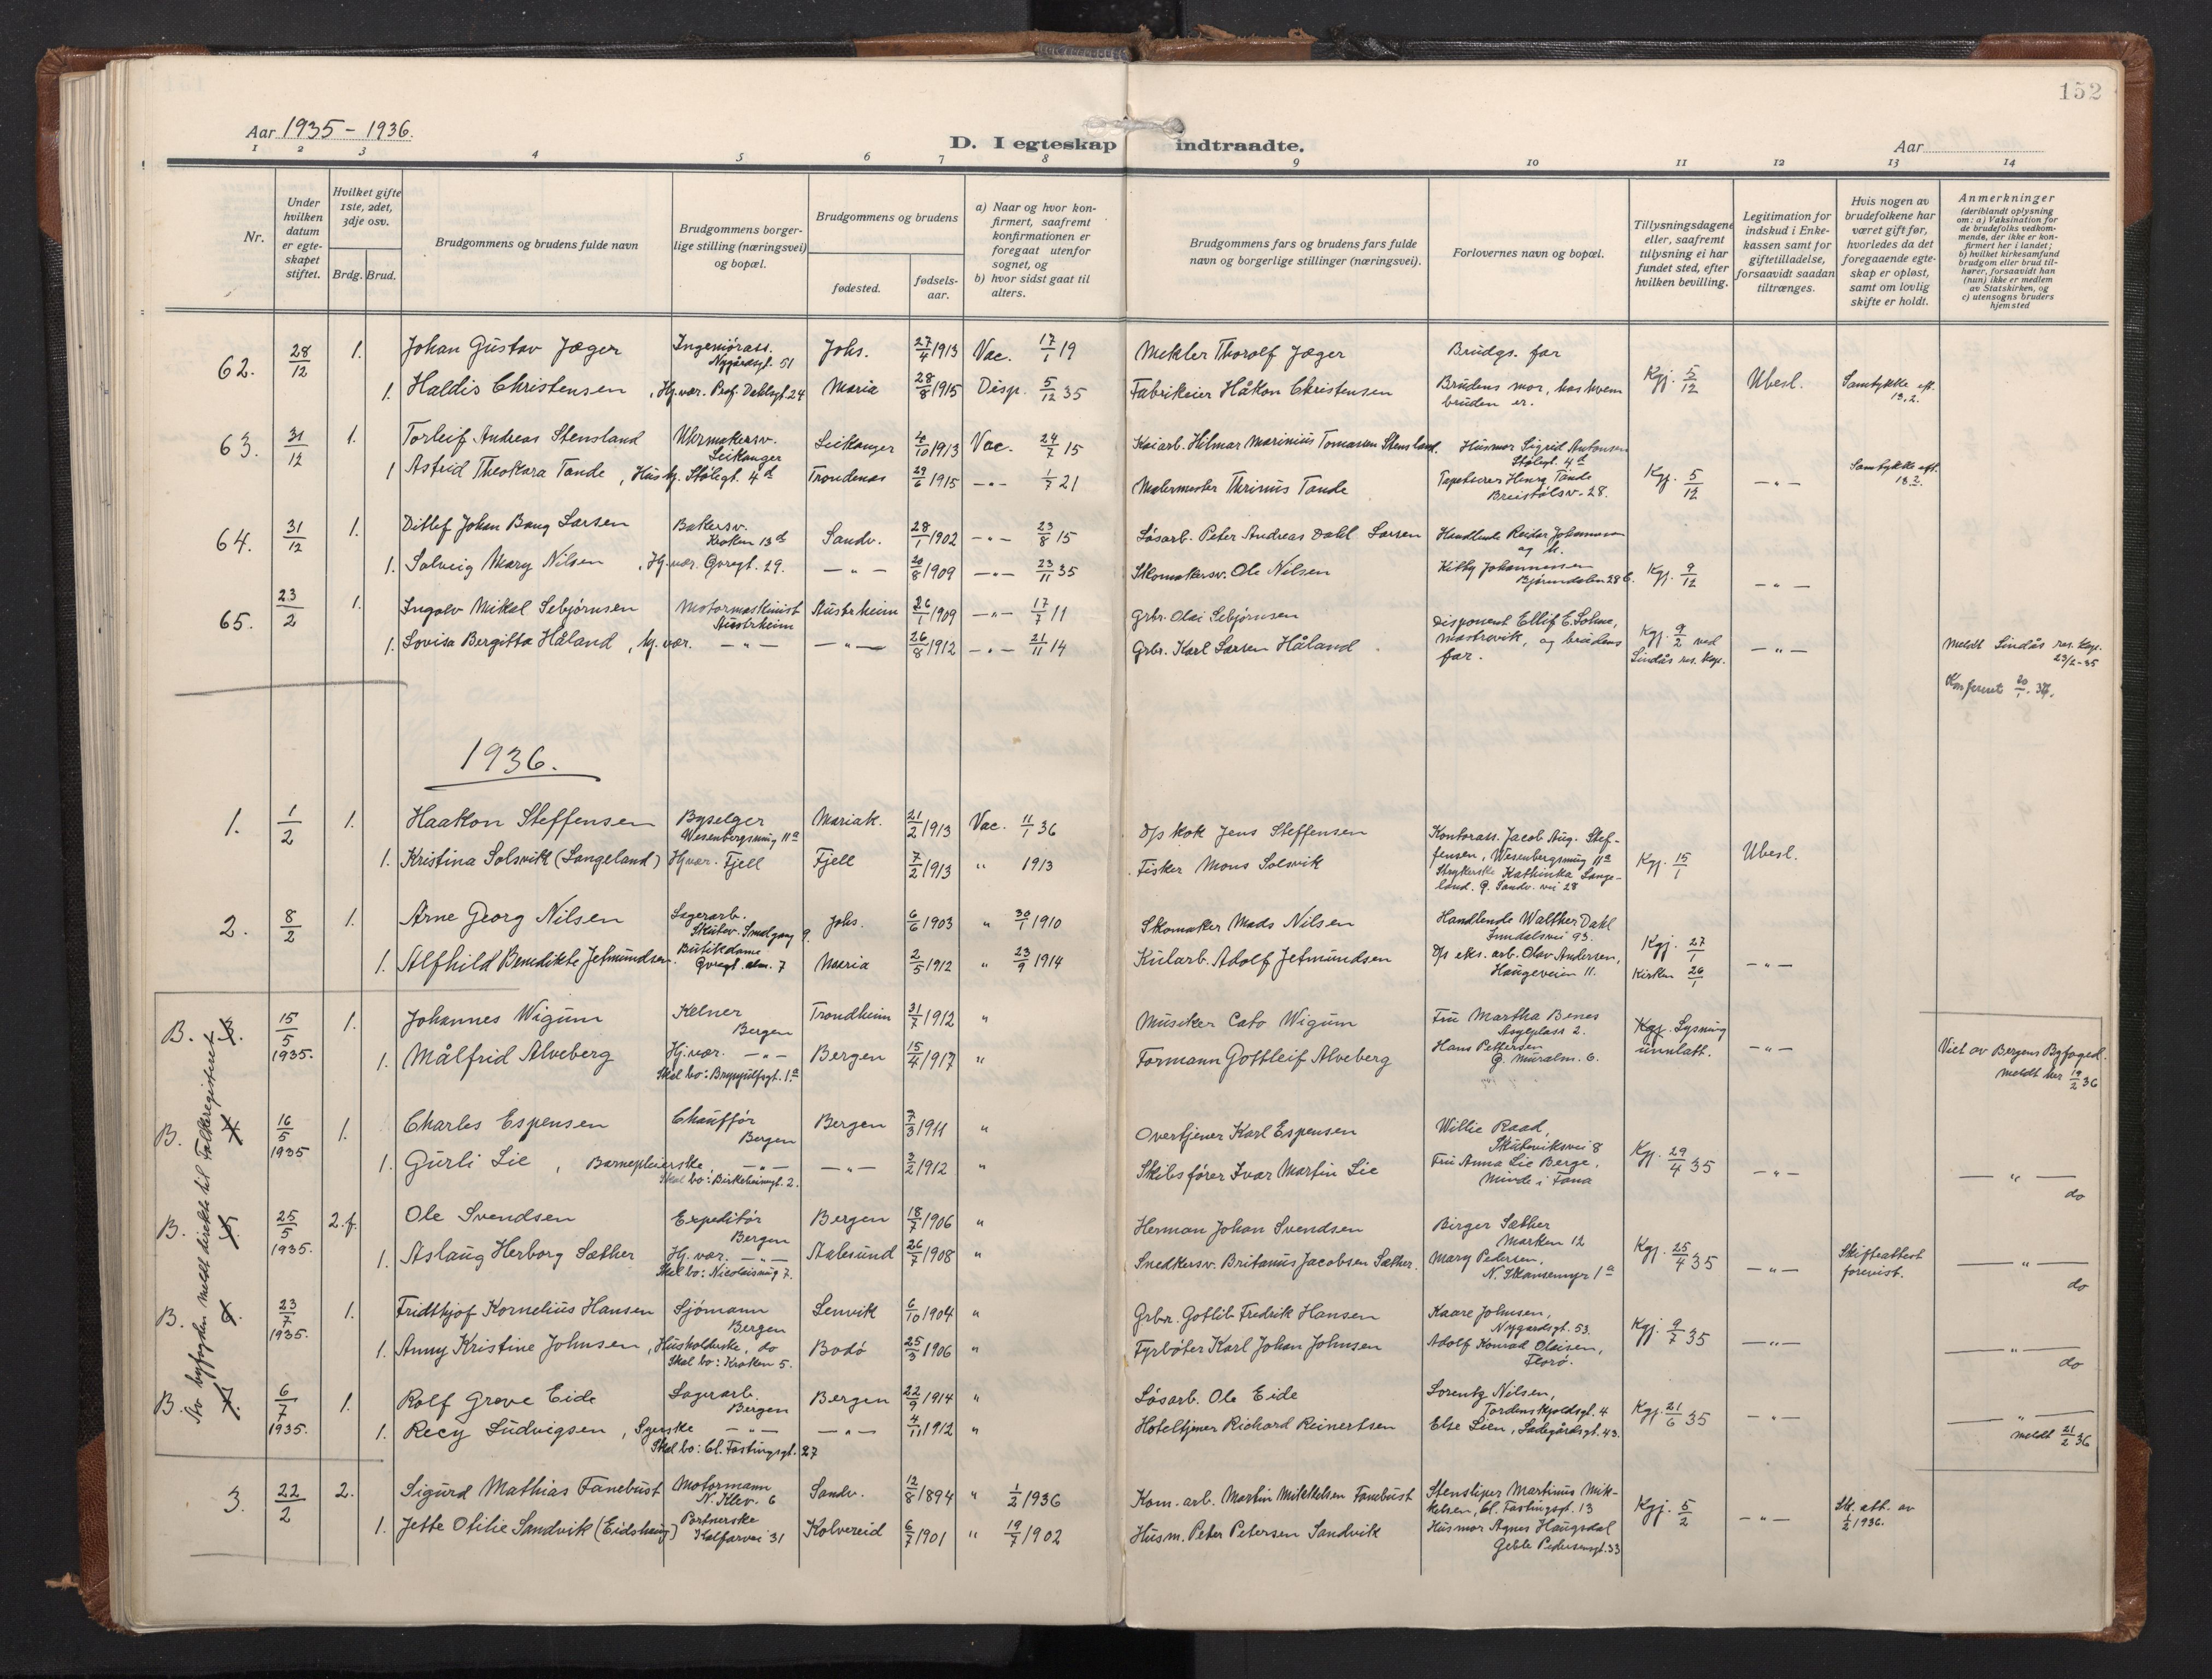 152
Aar 1935 - 1936.
D. I egteskap indtraadte.
Aar
1 2 3 4 5 6 7 8 9 10 11 12 13 14
Nr.
Under hvilken datum er egteskapet stiftet.
Hvilket gifte 1ste, 2det, 3dje osv.
Brdg. Brud.
Brudgommens og brudens fulde navn
Brudgommens borgerlige stilling (næringsvei) og bopæl.
Brudgommens og brudens
fødested.
fødselsaar.
a) Naar og hvor konfirmert, saafremt konfirmationen er foregaat utenfor sognet, og
b) hvor sidst gaat til alters.
Brudgommens fars og brudens fars fulde navn og borgerlige stillinger (næringsvei).
Forlovernes navn og bopæl.
Tillysningsdagene eller, saafremt tillysning ei har fundet sted, efter hvilken bevilling.
Legitimation for indskud i Enkekassen samt for giftetilladelse, forsaavidt saadan tiltrænges.
Hvis nogen av brudefolkene har været gift før, hvorledes da det foregaaende egteskap er opløst, samt om lovlig skifte er holdt.
Anmerkninger
(deriblandt oplysning om: a) Vaksination for de brudefolks vedkommende, der ikke er konfirmert her i landet; b) hvilket kirkesamfund brudgom eller brud tilhører, forsaavidt han (hun) ikke er medlem av Statskirken, og c) utensogns bruders hjemsted
62. 28/12 1. Johan Gustav Jæger Ingeniørass. Nygårdsgt. 51 Johs. 27/4 1913 Vac. 17/1 19 Mekler Thorolf Jæger Brudgs. far
1. Haldis Christensen, Hj.vær. Prof. Dahlsgt. 24 Maria 28/8 1915 Disp. 5/12 35 Fabrikeier Håkon Christensen Brudens mor, hos hvem bruden er. Kgj. 5/12 Ubesl. Samtykke eft. 13.2.
63. 31/12 1. Torleif Andreas Stensland Uhrmakersv. Leikanger Leikanger 4/10 1913 Vac. 24/7 15 Kaiarb. Hilmar Marinius Tomassen Stensland. Husmor Sigrid Antonsen Stølegt. 4d
1 Astrid Theokara Tande, Hushj. Stölegt. 4d Trondenes 29/6 1915 —"— 1/7 21 Malermester Thrinus Tande Tapetserer Henry Tande Breistølsv. 28. Kgj. 5/12 —"— Samtykke eft. 13.2.
64. 31/12 1. Ditlef Johan Bang Larsen Bakersv. Kroken 13d Sandv. 28/1 1902 —"— 23/8 15 Løsarb. Peter Andreas Dahl Larsen Handlende Reidar Johannessen og h.
1. Solveig Mary Nilsen, Hj.vær. Øvregt. 29. —"— 20/8 1909 —"— 23/11 35 Skomakersv. Ole Nilsen Kitty Johannessen Bjørndalen 28 b. Kgj. 9/12 —"—
65. 23/2 1. Ingolv Mikal Sebjørnsen Motormaskinist Austrheim Austrheim 26/1 1909 —"— 17/7 11 Grbr. Olai Sebjørnsen Disponent Ellif E. Lohne,
1. Lovisa Bergitta Håland, hj.vær. —"— —"— 26/8 1912 —"— 21/11 14 Grbr. Karl Larsen Håland Mastrevik, og brudens far. Kgj. 9/2 ved Lindås res. kap. —"— Meldt Lindås res. kap. 23/2-35
Konferert 20/1. 36.
1936.
1. 1/2 1. Haakon Steffensen Byselger Wesenbergsmug 11a Mariak. 21/2 1913 Vac. 11/1 36 D/s kok Jens Steffensen Kontorass. Jacob Aug. Steffensen, Wesenbergsmug 11a
1. Kristina Solsvik (Langeland) Hj.vær. Fjell Fjell 7/2 1913 " 1913 Fisker Mons Solsvik Strykerske Kathinka Langeland. G. Sandv. vei 28 Kgj. 15/1 Ubesl.
2. 8/2 1. Arne Georg Nilsen Lagerarb. Skutev. Smalgang 9. Johs. 6/6 1903 " 30/1 1910 Skomaker Mads Nilsen Handlende Walther Dahl Lundalsvei 93.
1. Alfhild Benedikte Jetmundsen. Butikdame Øvregt. alm. 7 Maria 2/5 1912 " 23/9 1914 Kularb. Adolf Jetmundsen D/s eks. arb. Olav Andersen, Haugeveien 11. Kgj. 27/1 Kirken 26/1 —"—
Av byfogden meldt direkte til Folkeregisteret
B. 3. 15/5 1935. 1. Johannes Wigum Kelner Bergen Trondheim 31/7 1912 " Musiker Cato Wigum Fru Martha Benes Asylplass 2.
1. Målfrid Alveberg Hj.vær. —"— Skal bo: Brynjulfsgt. 1a Bergen 15/4 1917 " Formann Gottleif Alveberg Hans Pettersen G. Muralm. 6. Kgj. Lysning unnlatt. —"— Viet av Bergens Byfoged. Meldt her 19/2 36
B. 4. 16/5 1935 1. Charles Espensen Chauffør Bergen Bergen 7/3 1911 " Overtjener Karl Espensen Willie Raad, Skuteviksvei 8
1. Gurli Lie, Barnepleierske, —"— Skal bo: Birkebeinergt. 2. —"— 3/2 1912 " Skibsfører Ivar Martin Lie Fru Anna Lie Berge, Minde i Fana Kgj. 29/4 35 —"— —"— do
B. 5. 25/5 1935. 2. f. Ole Svendsen Expeditør Bergen Bergen 18/7 1906 " Herman Johan Svendsen Birger Sæther Marken 12
1. Aslaug Herborg Sæther Hj.vær. —"— Skal bo: Nicolaismug 7. Aalesund 26/7 1908 " Snedkersv. Britanus Jacobsen Sæther. Mary Pedersen, N. Skansemyr 1a Kgj. 25/4 35 —"— Skifteattest forevist. —"— do
B. 6. 23/7 1935. 1. Fridthjof Kornelius Hansen Sjømann Bergen Lenvik 6/10 1904 " Grbr. Gotlib Fredrik Hansen Kaare Johnsen, Nygårdsgt. 53.
1. Anny Kristine Johnsen, Husholderske, do Skal bo: Kroken 5. Bodø 25/3 1906 " Fyrbøter Karl Johan Johnsen Adolf Konrad Olaisen, Florø. Kgj. 9/7 35 —"— —"— do
B. 7. 6/7 1935. 1. Rolf Greve Eide Lagerarb. Bergen Bergen 22/9 1914 " Løsarb. Ole Eide Lorentz Nilsen, Tordenskjoldsgt. 4
1. Recy Ludvigsen, Syerske —"— Skal bo: Cl. Fastingsgt. 27 —"— 4/11 1912 " Hoteltjener Richard Reinertsen Else Lien, Ladegårdsgt. 43. Kgj. 21/6 35 —"— —"— meldt 21/2 36
3. 22/2 2. Sigurd Mathias Fanebust Motormann N. Klev. 6 Sandv. 12/8 1894 " 1/2 1936 Kom. arb. Martin Mikkelsen Fanebust Stensliper Martinus Mikkelsen, Cl. Fastingsgt. 13
1. Jette Otilie Sandvik (Eidshaug) Portnerske Kalfarvei 31 Kolvereid 6/7 1901 " 19/7 1902 Husm. Peter Petersen Sandvik Husmor Agnes Haugsdal Geble Pedersensgt. 33 Kgj. 5/2 —"— Sk. att. av 1/2 1936.